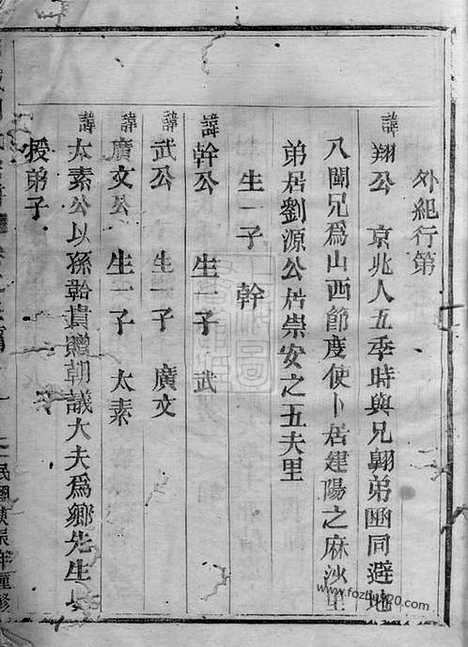 外紀行第
諱翔公 京兆人五季時與兄翺弟豳同避地
八閩兄爲山西節度使卜居建陽之麻沙里
弟居劉源公居崇安之五夫里
生一子 幹
諱幹公 生一子 武
諱武公 生一子 廣文
諱廣文公 生一子 太素
諱太素公以孫韐貴贈朝議大夫爲鄉先生
授弟子
民國庚辰年重修
www.fozhu920.com